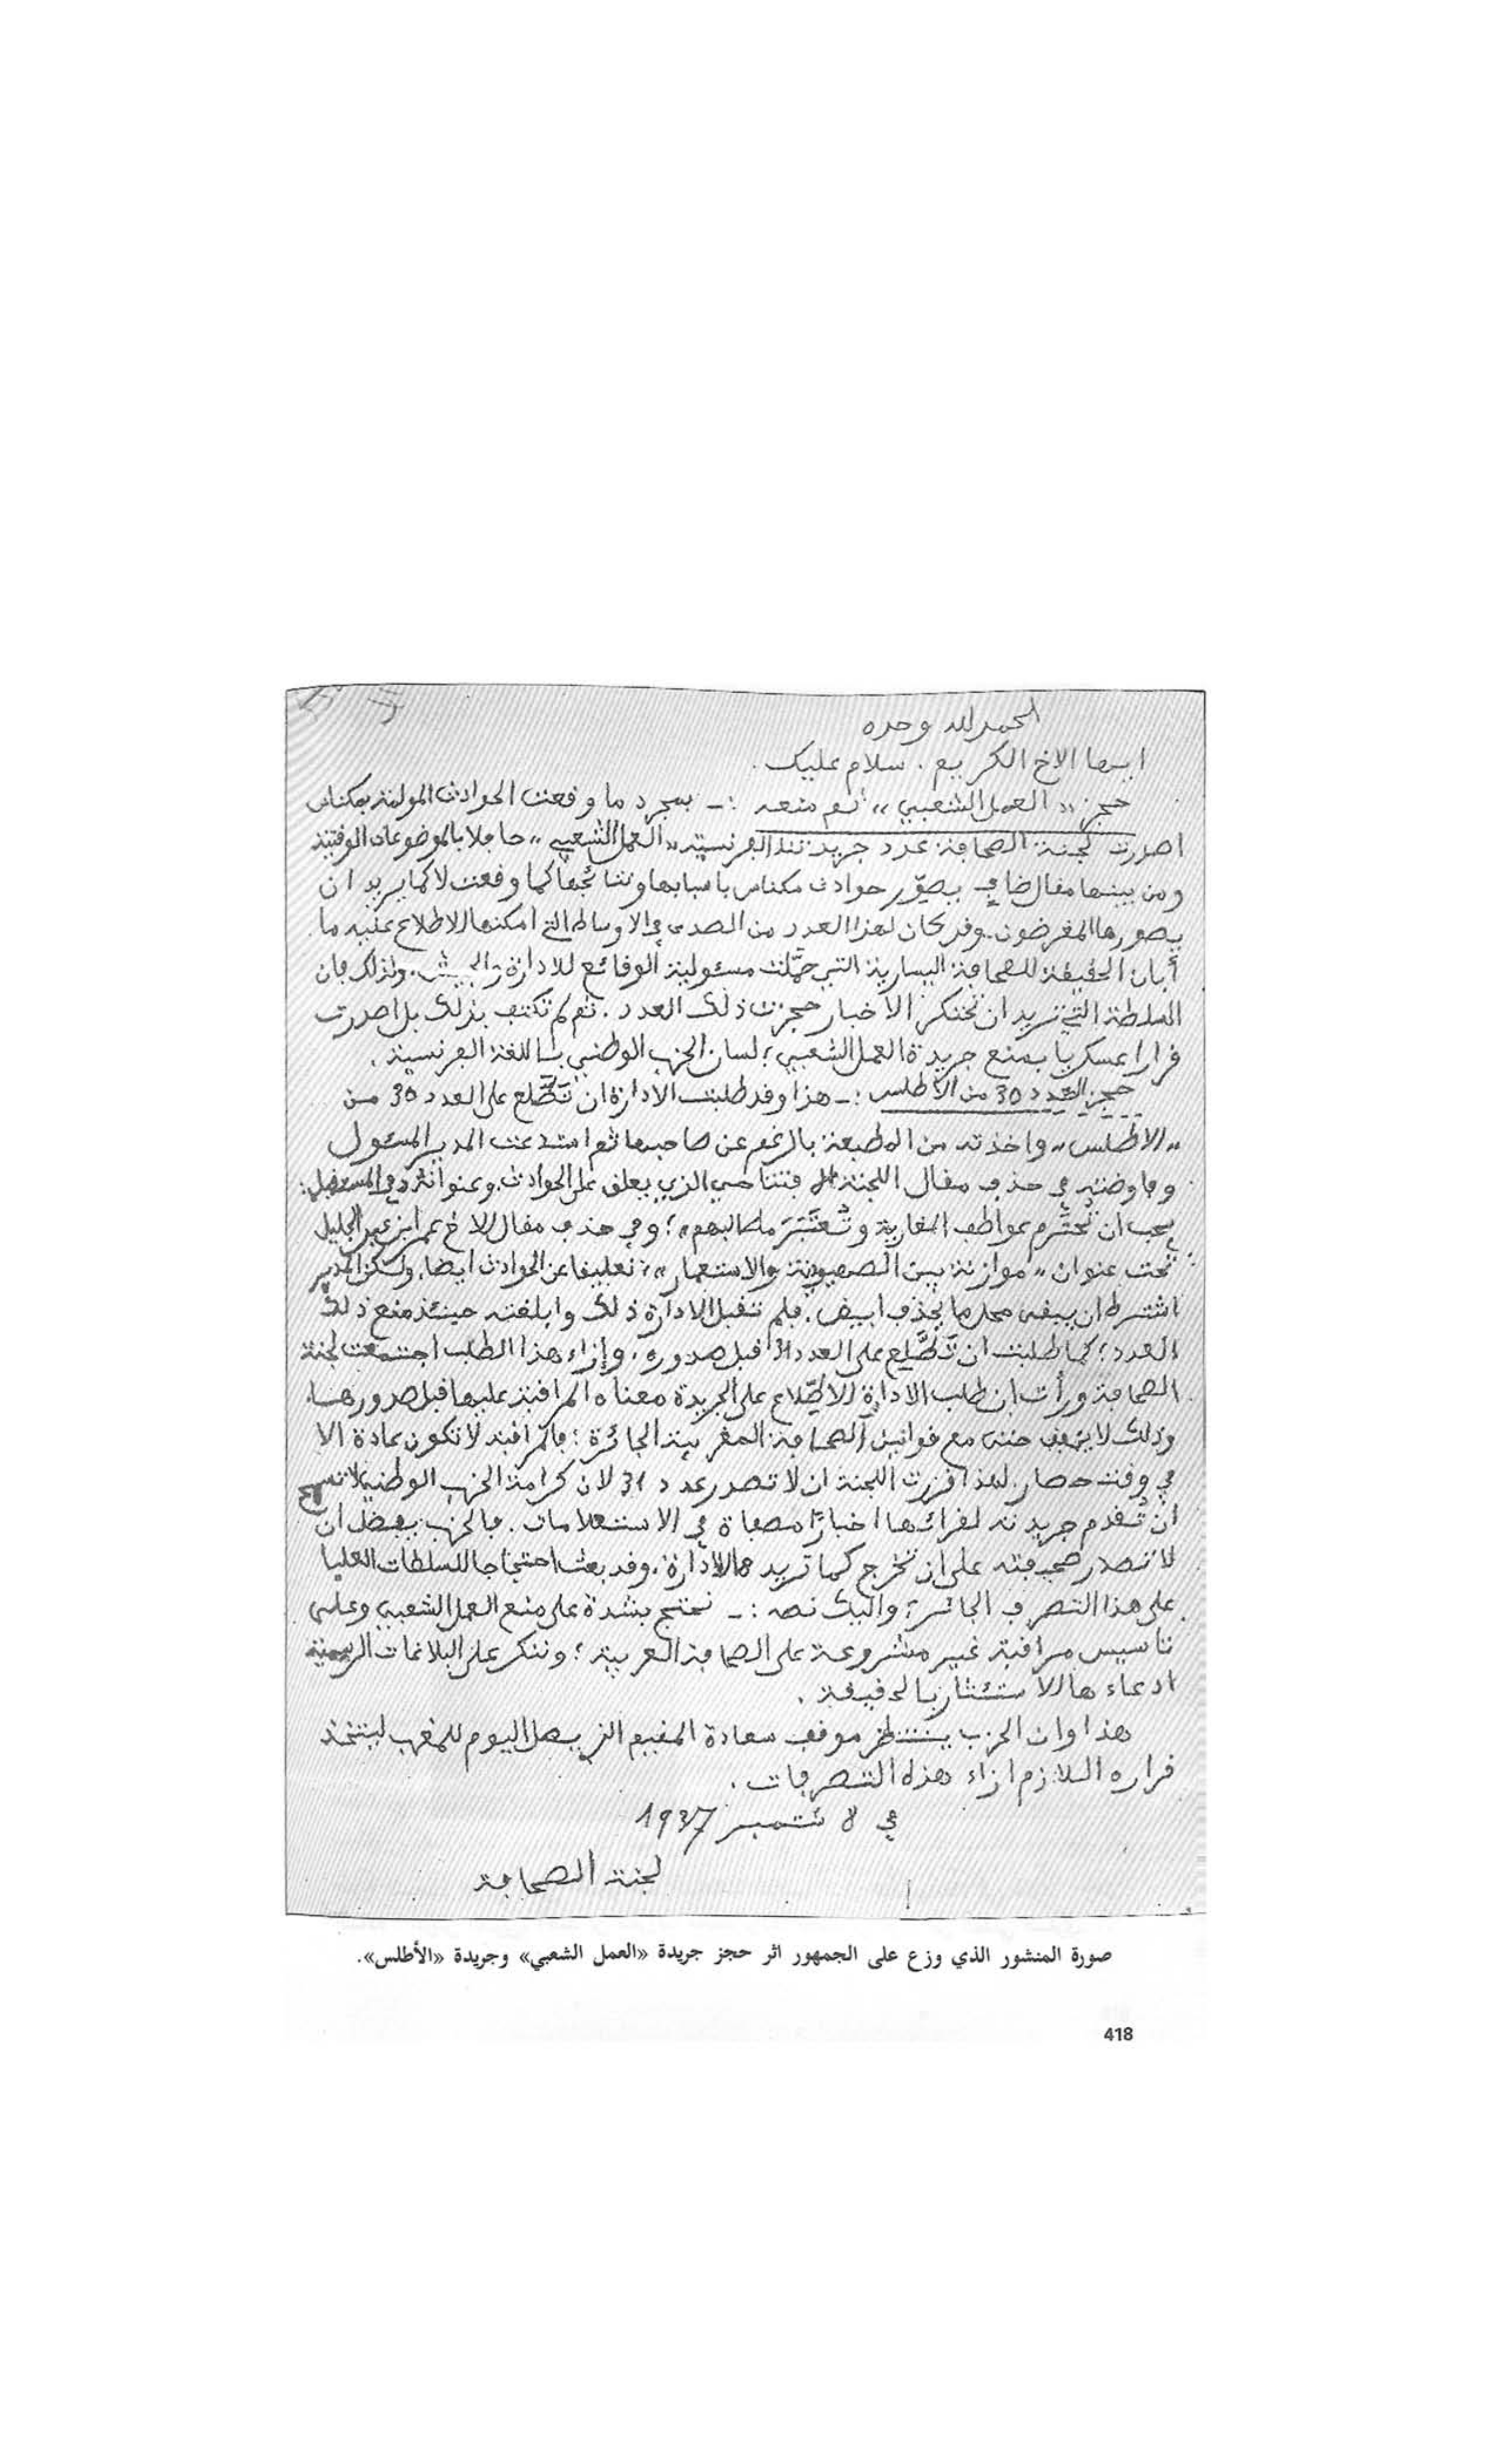 الحمد لله وحده
ايها الاخ الكريم . سلام عليك .
حجز „ العمل الشعبي „ ثم منعه :ـ بمجرد ما وقعت الحوادث المولمة بمكناس
اصدرت لجنة الصحافة عدد جريدتنا الفرنسية „ العمل الشعبي „ حافلا بالموضوعات الوقتية
ومن بينها مقال ضافي يصوّر حوادث مكناس باسبابها ونتائجها كما وقعت لا كما يريد ان
يصورها المغرضون. وقد كان لهذا العدد من الصدى في الاوساط التي امكنها الاطلاع عليه ما
أبان الحقيقة للصحافة اليسارية التي حمّلت مسئولية الوقائع للادارة والجيش. ولذلك فان
السلطة التي تريد ان تحتكر الاخبار حجزت ذلك العدد . ثم لم تكتف بذلك بل اصدرت
قرارا عسكريا بمنع جريدة العمل الشعبي ؛ لسان الحزب الوطني باللغة الفرنسية .
حجز العدد 30 من الأطلس :ـ هذا وقد طلبت الادارة ان تَطَّلع على العدد 30 من
„ الاطلس „ واخذته من المطبعة بالرغم عن صاحبها ثم استدعت المدير المسئول
وفاوضته في حذف مقال اللجنة الافتتاحي الذي يعلق على الحوادث. وعنوانه في المستقبل:
يجب ان تُحترم عواطف المغاربة وتُعتَبَرَ مطالبهم „؛ وفي حذف مقال الاخ عمر ابن عبد الجليل
تحت عنوان „ موازنة بين الصهيونية والاستعمار „؛ تعليقا عن الحوادث ايضا. ولكن المدير
اشترط ان يبقى محل ما يحذف ابيض . فلم تقبل الادارة ذلك وابلغته حينئذ منع ذلك
العدد ؛ كما طلبت ان تَطَّلِع على العدد 31 قبل صدوره . وإزاء هذا الطلب اجتمعت لجنة
الصحافة ورأت ان طلب الادارة الاطّلاع على الجريدة معناه المراقبة عليها قبل صدورها.
وذلك لا يتفق حتى مع قوانين الصحافة المغربية الجائرة ؛ فالمراقبة لا تكون عادة الا
في وقت حصار. لهذا قررت اللجنة ان لا تصدر عدد 31 لان كرامة الحزب الوطني لا تسمح
ان تُقدم جريدته لقرائها اخبارًا مصفاة في الاستعلامات . فالحزب يفضل ان
لا تصدر صحيفته على ان تخرج كما تريدها الادارة . وقد بعث احتجاجا للسلطات العليا
على هذا التصرف الجائر ؛ واليك نصه :ـ نحتج بشدة على منع العمل الشعبي وعلى
تاسيس مراقبة غير مشروعة على الصحافة العربية ؛ وننكر على البلاغات الرسمية
ادعاءها الاستئثار بالحقيقة .
هذا وان الحزب ينتظر موقف سعادة المقيم الذي يصل اليوم للمغرب ليتخذ
قراره اللازم ازاء هذه التصرفات .
في 8 شتمبر 1937
لجنة الصحافة
صورة المنشور الذي وزع على الجمهور اثر حجز جريدة «العمل الشعبي» وجريدة «الأطلس».
418